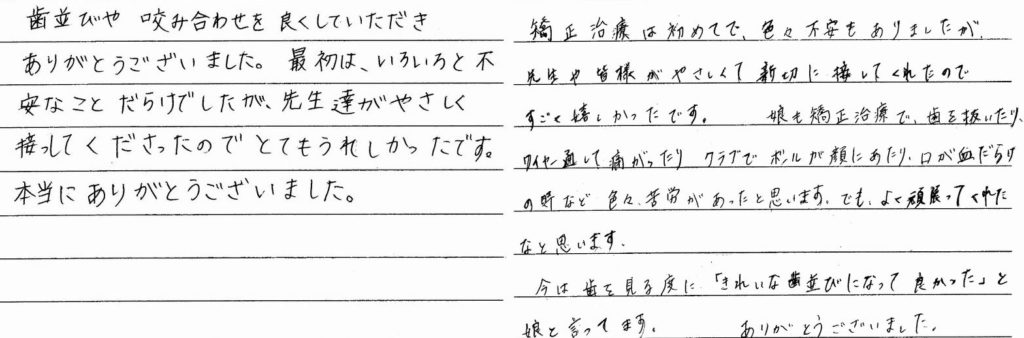 歯並びや 咬み合わせを 良くしていただき
ありがとうございました。 最初は、いろいろと不
安なこと だらけでしたが、先生達がやさしく
接っしてくださったのでとてもうれしかったです。
本当にありがとうございました。
矯正治療は初めてで、色々不安もありましたが、
先生や皆様がやさしくて 親切に接してくれたので
すごく嬉しかったです。 娘も矯正治療で、歯を抜いたり、
ワイヤー通して痛がったり クラブでボールが顔にあたり、口が血だらけ
の時など 色々、苦労があったと思います。でも、よく頑張ってくれた
なと思います。
今は歯を見る度に「きれいな歯並びになって 良かった」と
娘と言ってます。 ありがとうございました。